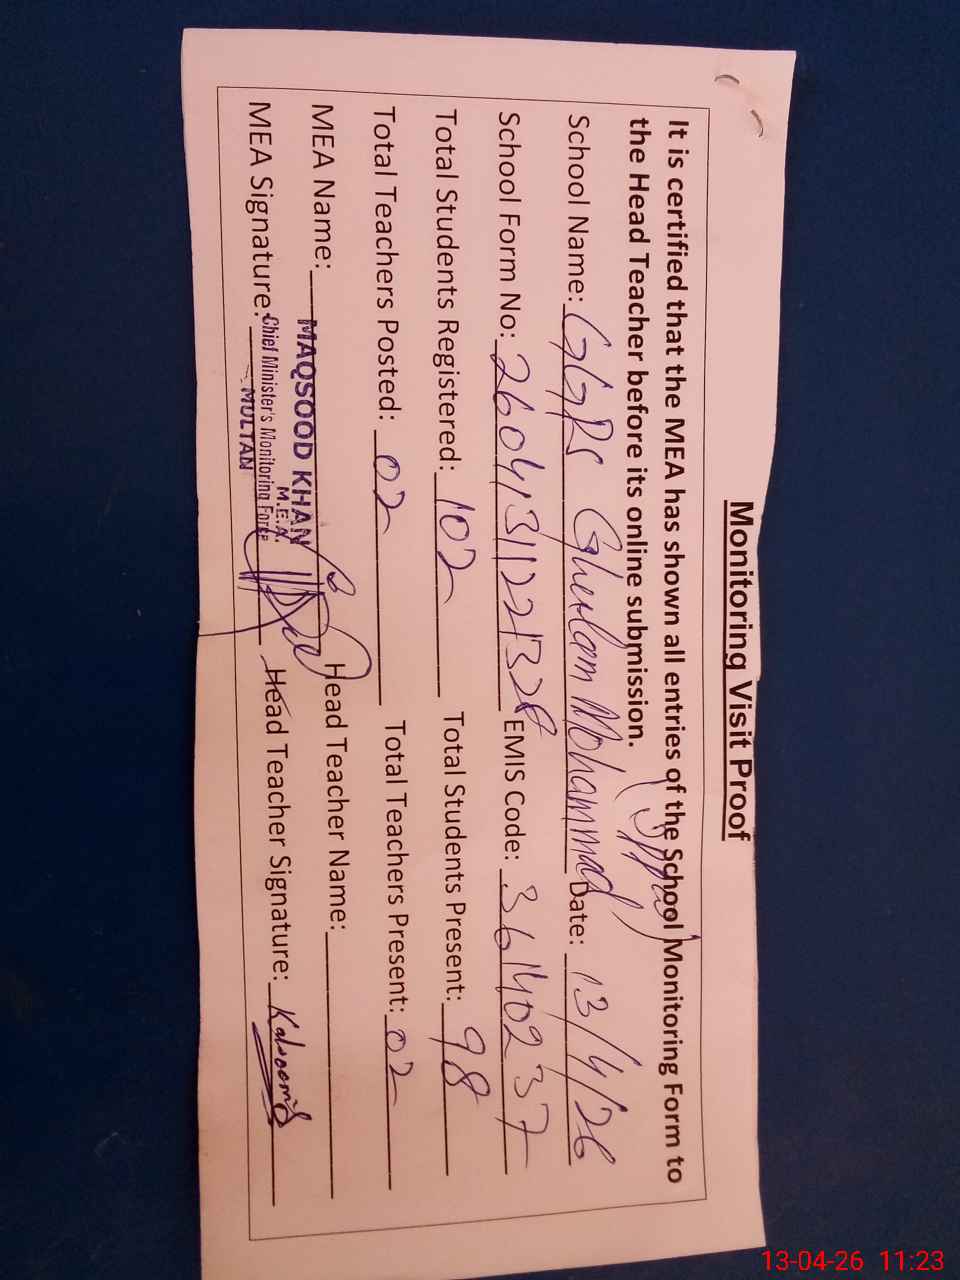 Monitoring Visit Proof
It is certified that the MEA has shown all entries of the School Monitoring Form to
the Head Teacher before its online submission.
School Name: GGPS Ghulam Mohammad Date: 13/4/26
School Form No: 2604131122132 EMIS Code: 36140237
Total Students Registered: 102 Total Students Present: 98
Total Teachers Posted: 02 Total Teachers Present: 02
MEA Name: MAQSOOD KHAN Head Teacher Name:
M.E.A.
MEA Signature: Chief Minister's Monitoring Force Head Teacher Signature:
MULTAN
13-04-26 11:23